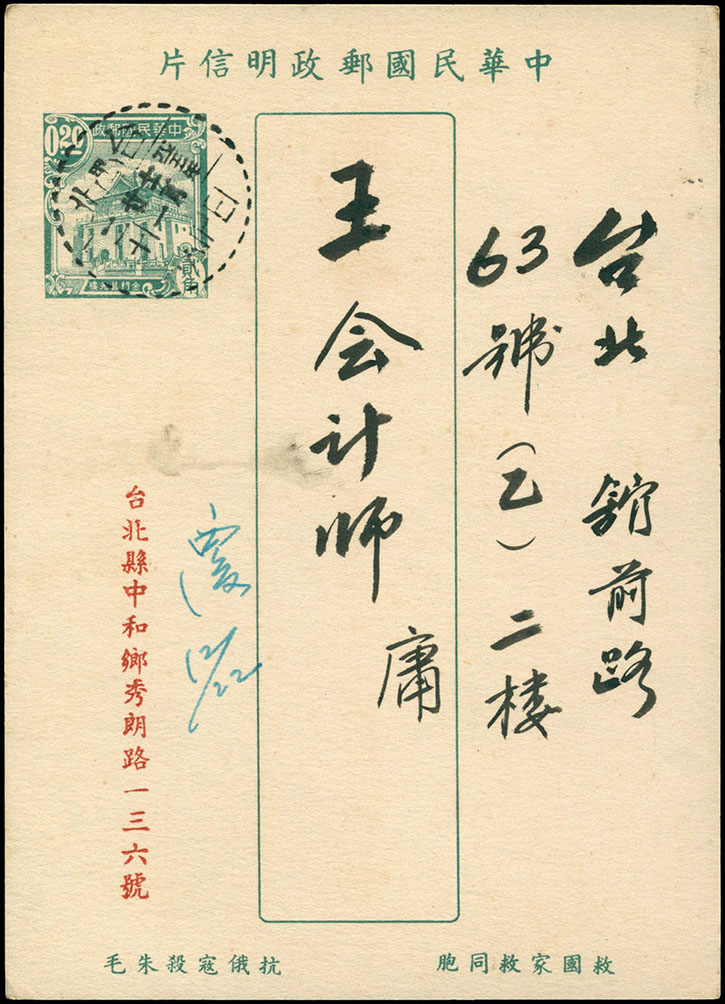 中華民國郵政明信片
中華民國郵政
0.20
貳角
金門莒光樓
台北 館前路
63號(乙)二楼
王会计师 庸
覆
12/22
台北縣中和鄉秀朗路一三六號
救國家救同胞
抗俄寇殺朱毛